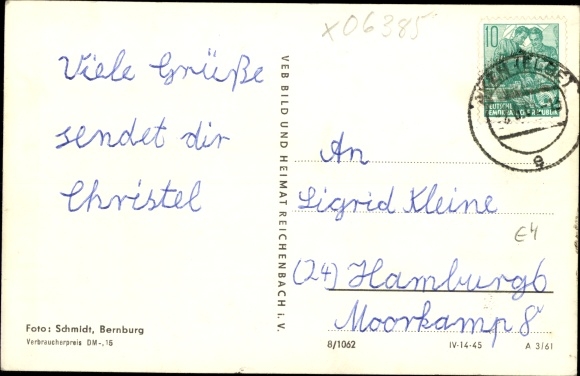 x06385
Viele Grüße
sendet dir
Christel
VEB BILD UND HEIMAT REICHENBACH i. V.
10
DEUTSCHE
DEMOKRATISCHE REPUBLIK
(ELBE)
g
An
Sigrid Kleine
E4
(24) Hamburg 6
Moorkamp 8
Foto: Schmidt, Bernburg
Verbraucherpreis DM -,16
8/1062 IV-14-45 A 3/61